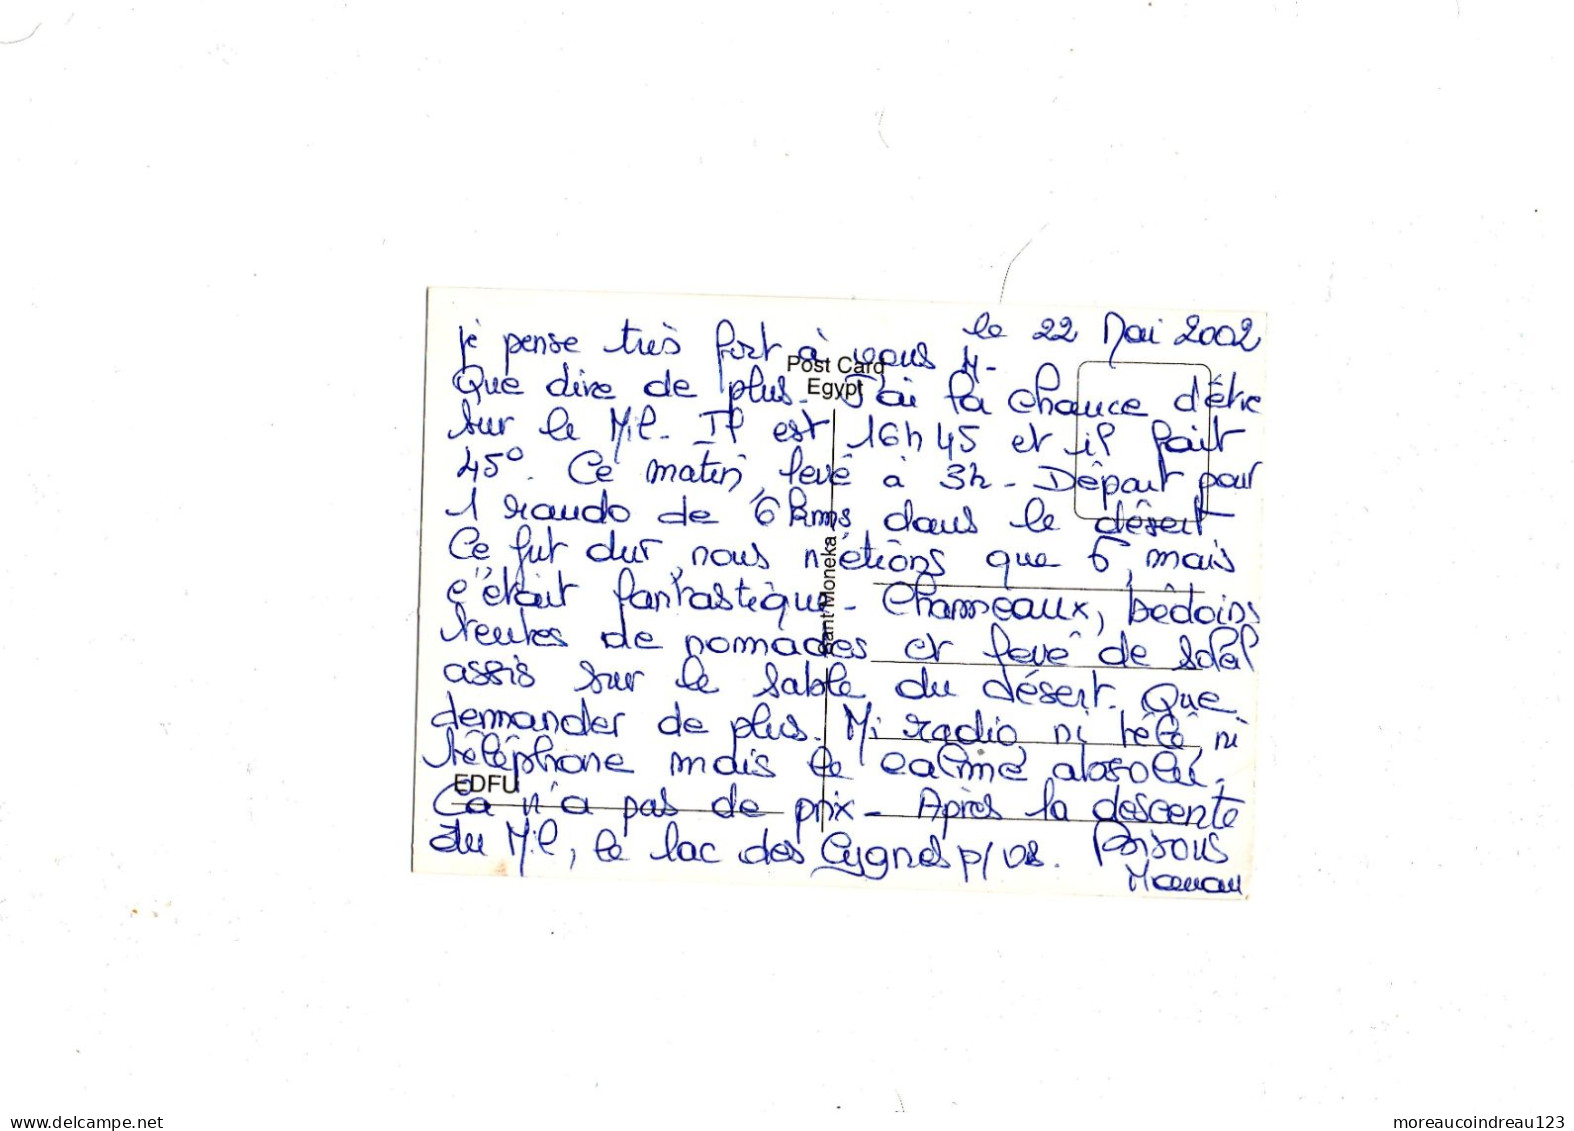 le 22 Mai 2002
je pense très fort à vous M-
Que dire de plus - J'ai la chance d'être
sur le Nil - Il est 16h45 et il fait
45°. Ce matin, levé à 3h - Départ pour
1 rando de 6 kms dans le désert
Ce fut dur, nous n'étions que 6, mais
c'était fantastique - Chameaux, bédoins
tentes de nomades et levé de soleil
assis sur le sable du désert. Que
demander de plus. Ni radio, ni télé, ni
téléphone mais le calme absolu.
Ca n'a pas de prix - Après la descente
du Nil, le lac des Cygnes p/ vs. Bisous
Post Card
Egypt
Sant Moneka
EDFU
Delcampe.net
moreaucoindreau123